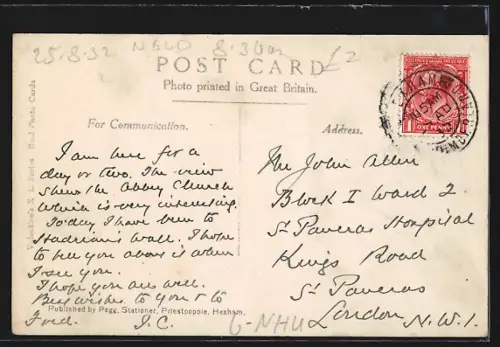 25-8-32 NBLD 8-30am
£2
POST CARD
Photo printed in Great Britain.
For Communication.
Address.
ONE PENNY
Valentine's X L Series. Real Photo Cards
I am here for a
day or two. The view
shows the Abbey Church
which is very interesting.
Today I have been to
Hadrian's Wall. I hope
to see you above is when
I see you.
I hope you are well.
Best wishes to you & to
Fred. J.C.
Mr John Allen
Block I Ward 2
St Pancras Hospital
Kings Road
St Pancras
London N.W.1.
Published by Pegg, Stationer, Priestpopple, Hexham.
6-NHU